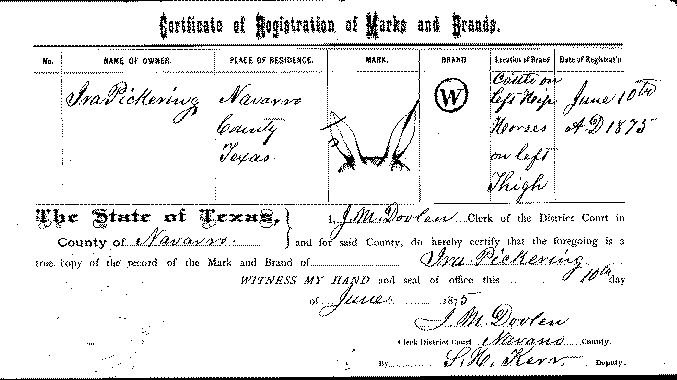 Certificate of Registration of Marks and Brands.
No. NAME OF OWNER. PLACE OF RESIDENCE. MARK. BRAND Location of Brand Date of Registrat'n
Ira Pickering Navarro County Texas W Cattle on left Hip Horses on left Thigh June 10th A D 1875
The State of Texas, I, J. M. Doolen Clerk of the District Court in
County of Navarro. and for said County, do hereby certify that the foregoing is a
true copy of the record of the Mark and Brand of Ira Pickering
WITNESS MY HAND and seal of office this 10th day
of June 1875
J. M. Doolen
Clerk District Court Navarro County.
By S. H. Kerr. Deputy.